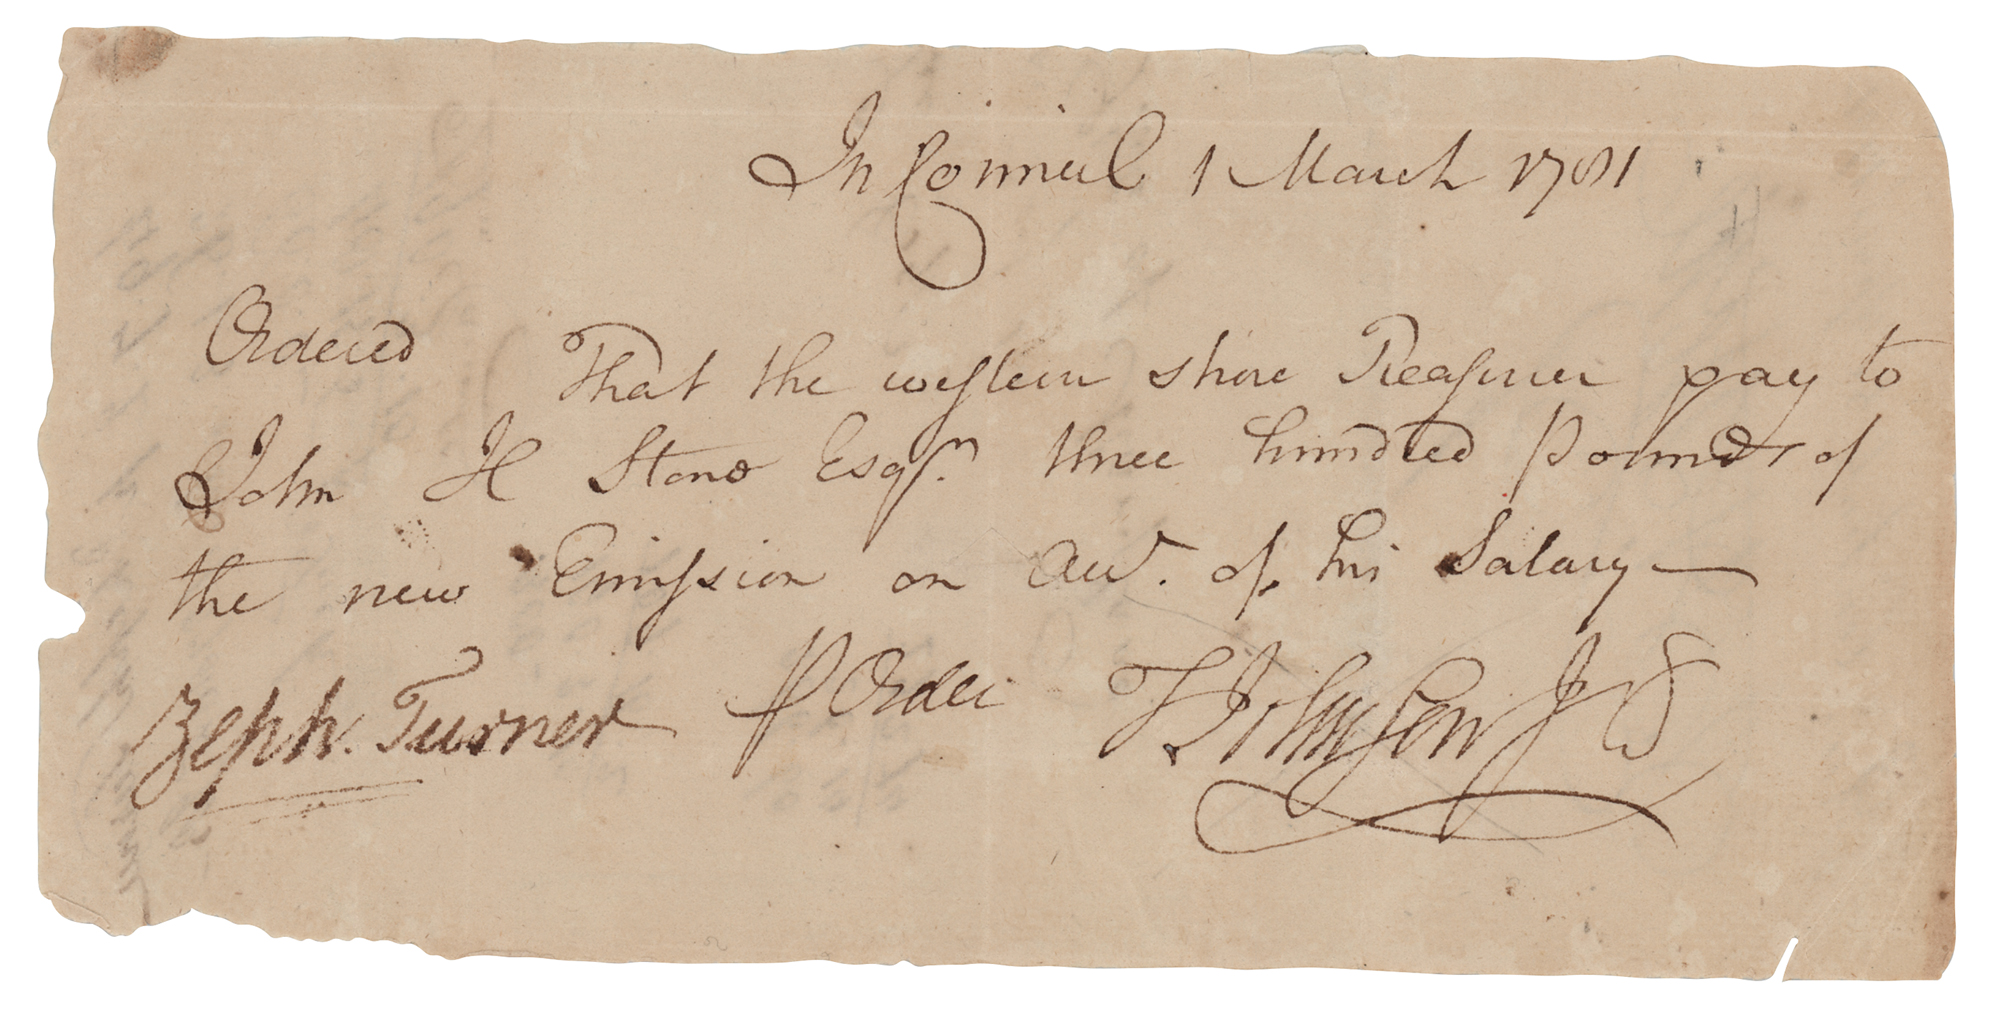 In Council 1 March 1781
Ordered That the western shore Treasurer pay to
John H Stone Esqr. three hundred Pounds of
the new Emission on Acct. of his Salary —
Zeph. Turner P Order T Johnson Jr